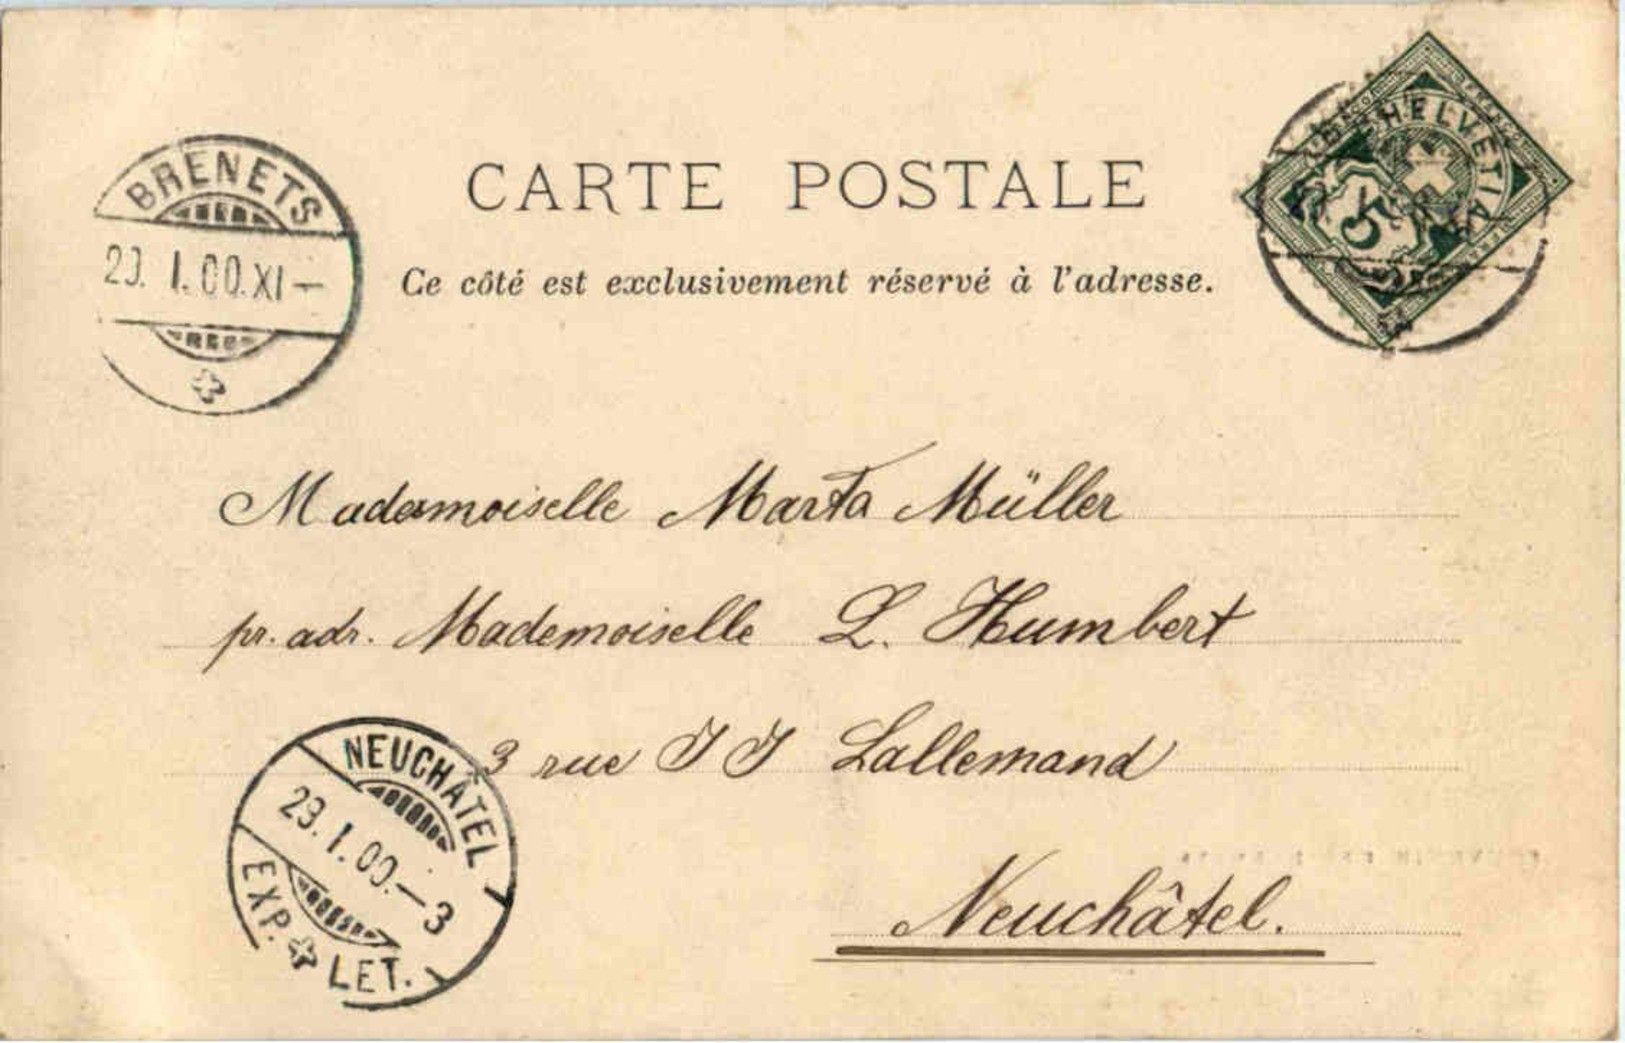 CARTE POSTALE
Ce côté est exclusivement réservé à l'adresse.
HELVETIA
5
BRENETS
29. I. 00. XI –
Mademoiselle Marta Müller
pr. adr. Mademoiselle L. Humbert
3 rue J J Lallemand
Neuchâtel.
NEUCHÂTEL
29. I. 00. – 3
EXP. LET.